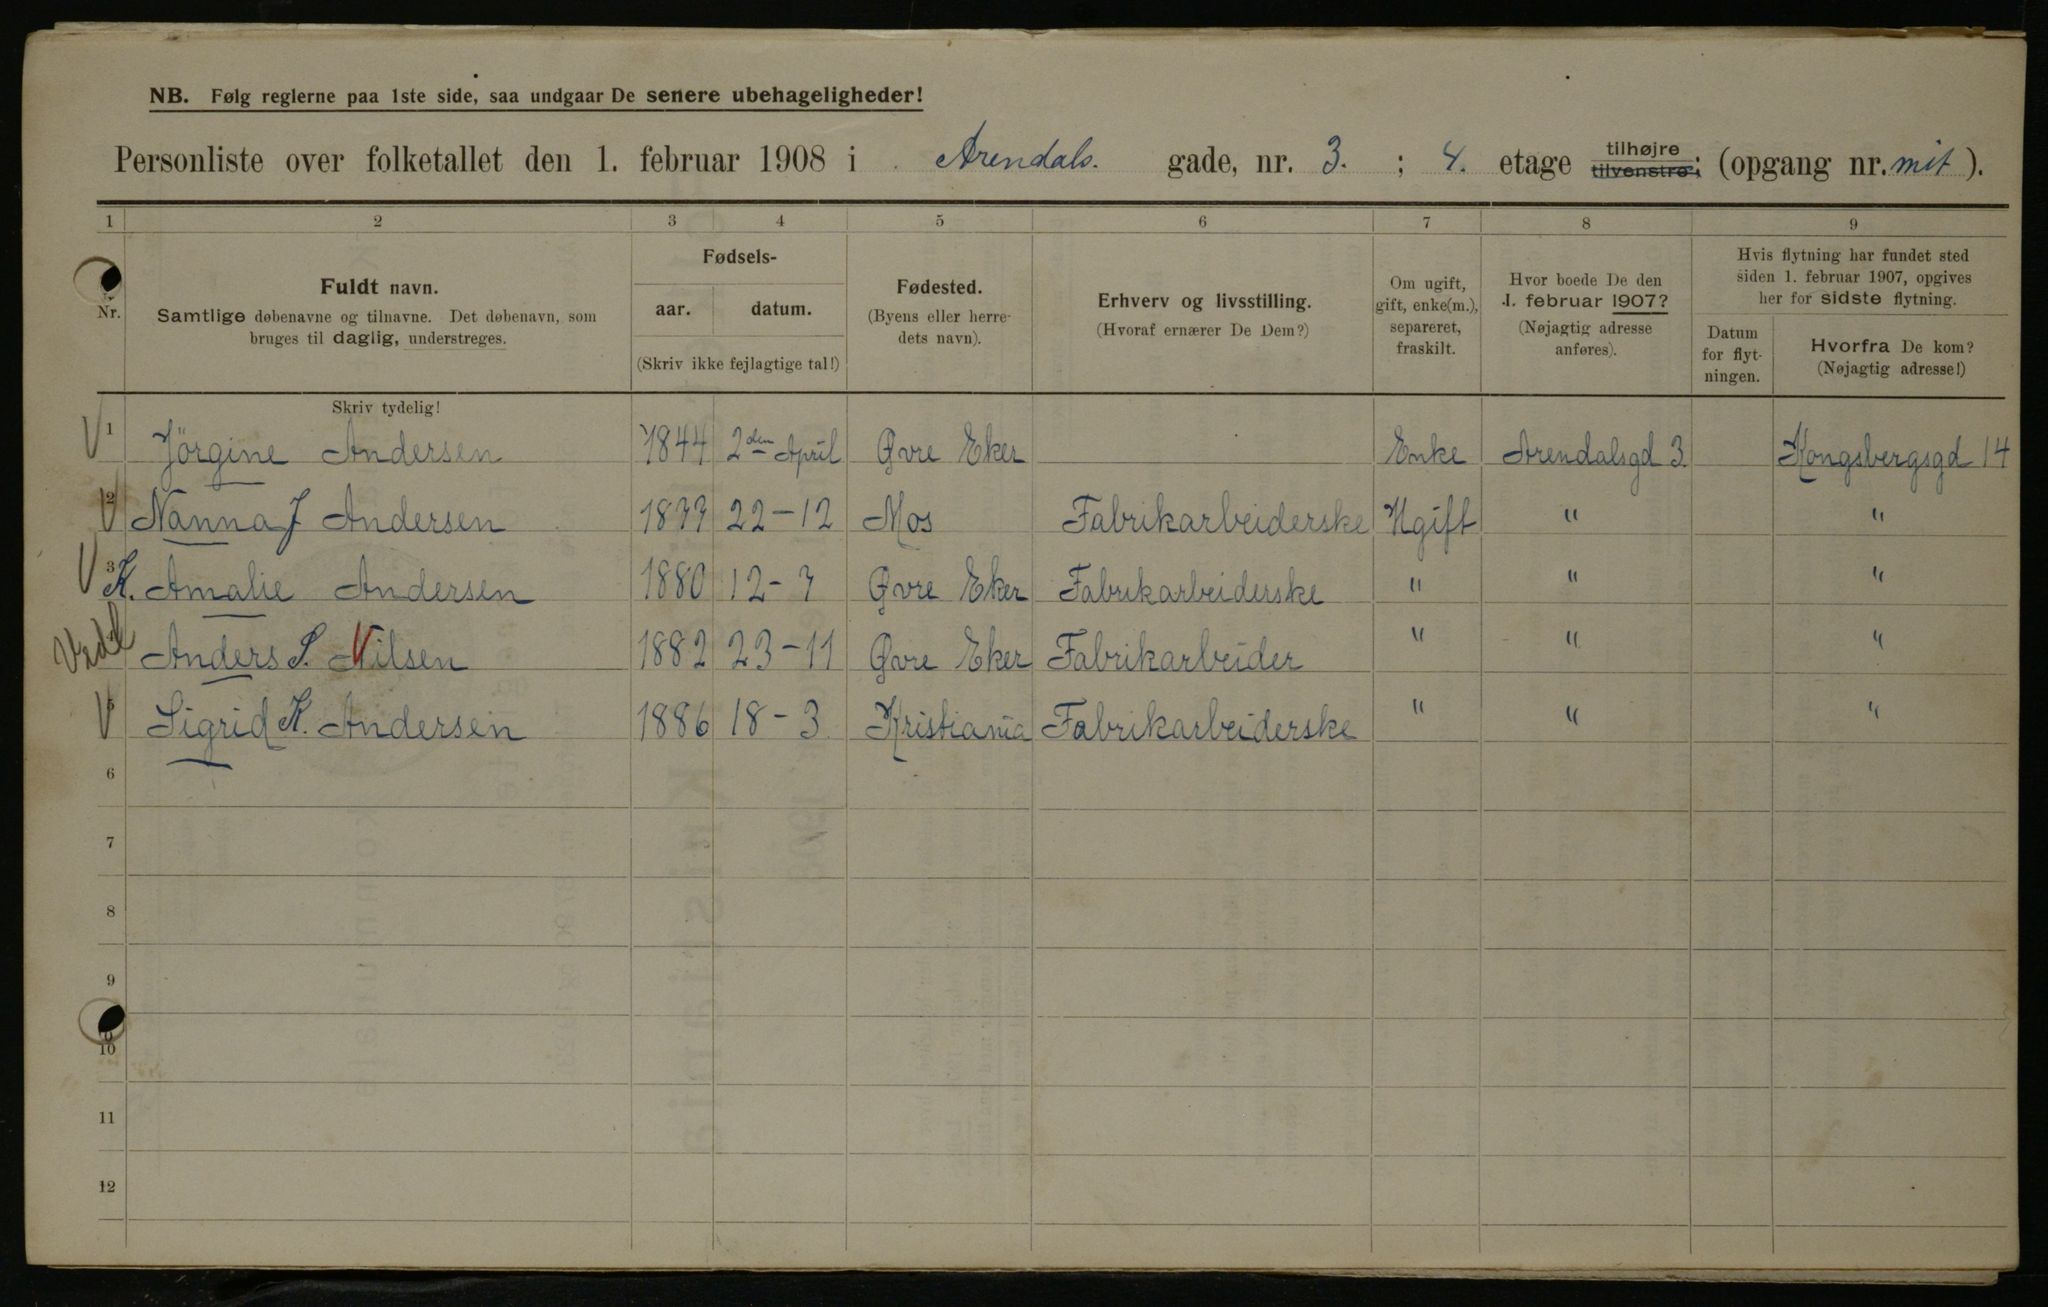 NB. Følg reglerne paa 1ste side, saa undgaar De senere ubehageligheder!
Personliste over folketallet den 1. februar 1908 i Arendals. gade, nr. 3. ; 4. etage tilhøjre tilvenstre; (opgang nr. mit ).
1 2 3 4 5 6 7 8 9
Nr.
Fuldt navn.
Samtlige døbenavne og tilnavne. Det døbenavn, som
bruges til daglig, understreges.
Fødsels-
aar. datum.
(Skriv ikke fejlagtige tal!)
Fødested.
(Byens eller herre-
dets navn).
Erhverv og livsstilling.
(Hvoraf ernærer De Dem?)
Om ugift,
gift, enke(m.),
separeret,
fraskilt.
Hvor boede De den
1. februar 1907?
(Nøjagtig adresse
anføres).
Hvis flytning har fundet sted
siden 1. februar 1907, opgives
her for sidste flytning.
Datum
for flyt-
ningen.
Hvorfra De kom?
(Nøjagtig adresse!)
Skriv tydelig!
1 Jörgine Andersen 1844 2den April Øvre Eker Enke Arendalsgd 3. Kongsbergsgd 14
2 Nanna J Andersen 1877 22-12 Mos Fabrikarbeiderske Ugift " "
3 K. Amalie Andersen 1880 12-7 Øvre Eker Fabrikarbeiderske " " "
Anders S. Nilsen 1882 23-11 Øvre Eker Fabrikarbeider " " "
5 Sigrid K. Andersen 1886 18-3. Kristiania Fabrikarbeiderske " " "
6
7
8
9
10
11
12